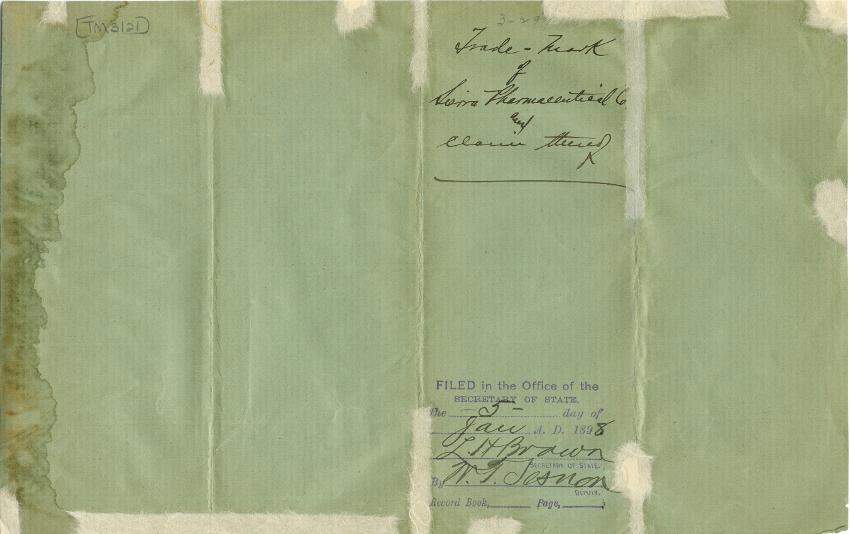 TM3121
Trade-Mark
of
Sierra Pharmaceutical Co.
and
Claim thereof
FILED in the Office of the
SECRETARY OF STATE.
the - 5 - day of
Jan A. D. 1898
L. H. Brown
SECRETARY OF STATE.
By W. T. Sesnon
DEPUTY.
Record Book, Page,